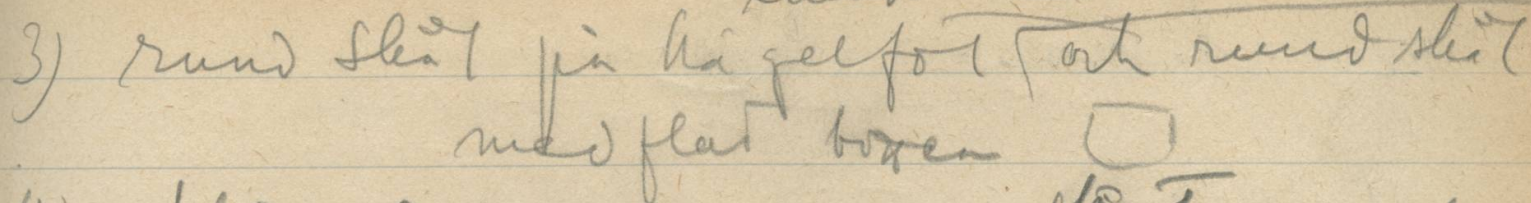 3) rund skål på kägelfot och rund skål
med flat botten